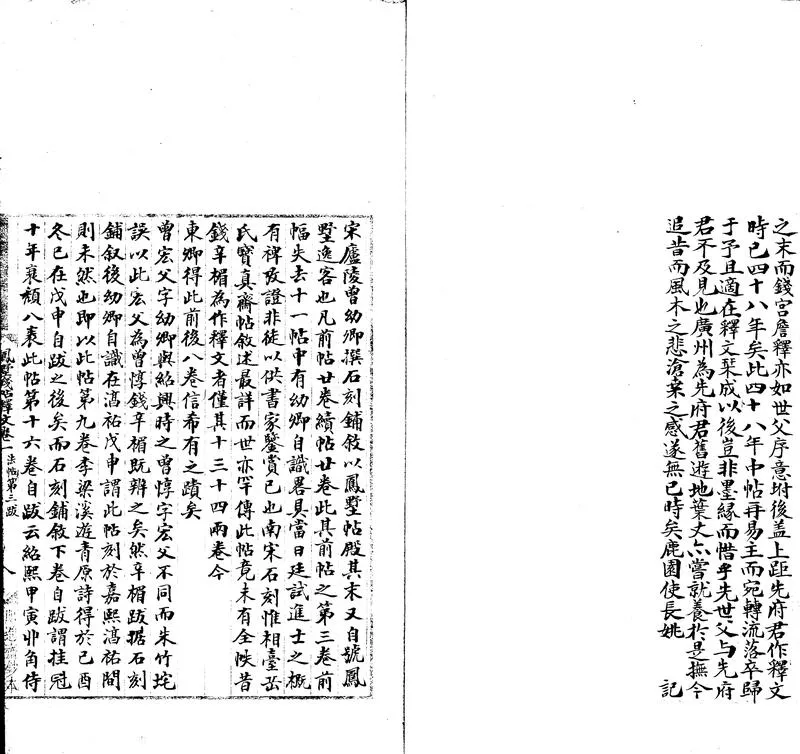 之末而錢宮詹釋亦如世父序意坿後盖上距先府君作釋文
時已四十八年矣此四十八年中帖再易主而宛轉流落卒歸
于予且適在釋文栞成以後豈非墨緣而惜乎先世父与先府
君不及見也廣州為先府君舊遊地葉丈亦嘗就養於是撫今
追昔而風木之悲滄桒之感遂無已時矣鹿園使長姚 記
宋廬陵曾幼卿撰石刻鋪敘以鳳墅帖殿其末又自號鳳
墅逸客也凡前帖廿卷續帖廿卷此其前帖之第三卷前
幅失去十一帖中有幼卿自識畧具當日廷試進士之概
有裨攷證非徒以供書家鑒賞已也南宋石刻惟相臺岳
氏寶真齋帖敘述最詳而世亦罕傳此帖竟未有全帙昔
錢辛楣為作釋文者僅其十三十四兩卷今
東卿得此前後八卷信希有之蹟矣
曾宏父字幼卿與紹興時之曾惇字宏父不同而朱竹垞
誤以此宏父為曾惇錢辛楣既辨之矣然辛楣跋據石刻
鋪敘後幼卿自識在湻祐戊申謂此帖刻於嘉熙湻祐間
則未然也即以此帖第九卷李梁溪遊青原詩得於己酉
冬已在戊申自跋之後矣而石刻鋪敘下卷自跋謂挂冠
十年衰頹八袠此帖第十六卷自跋云紹熙甲寅丱角侍
鳳墅殘帖釋文卷二 法帖第三跋 八